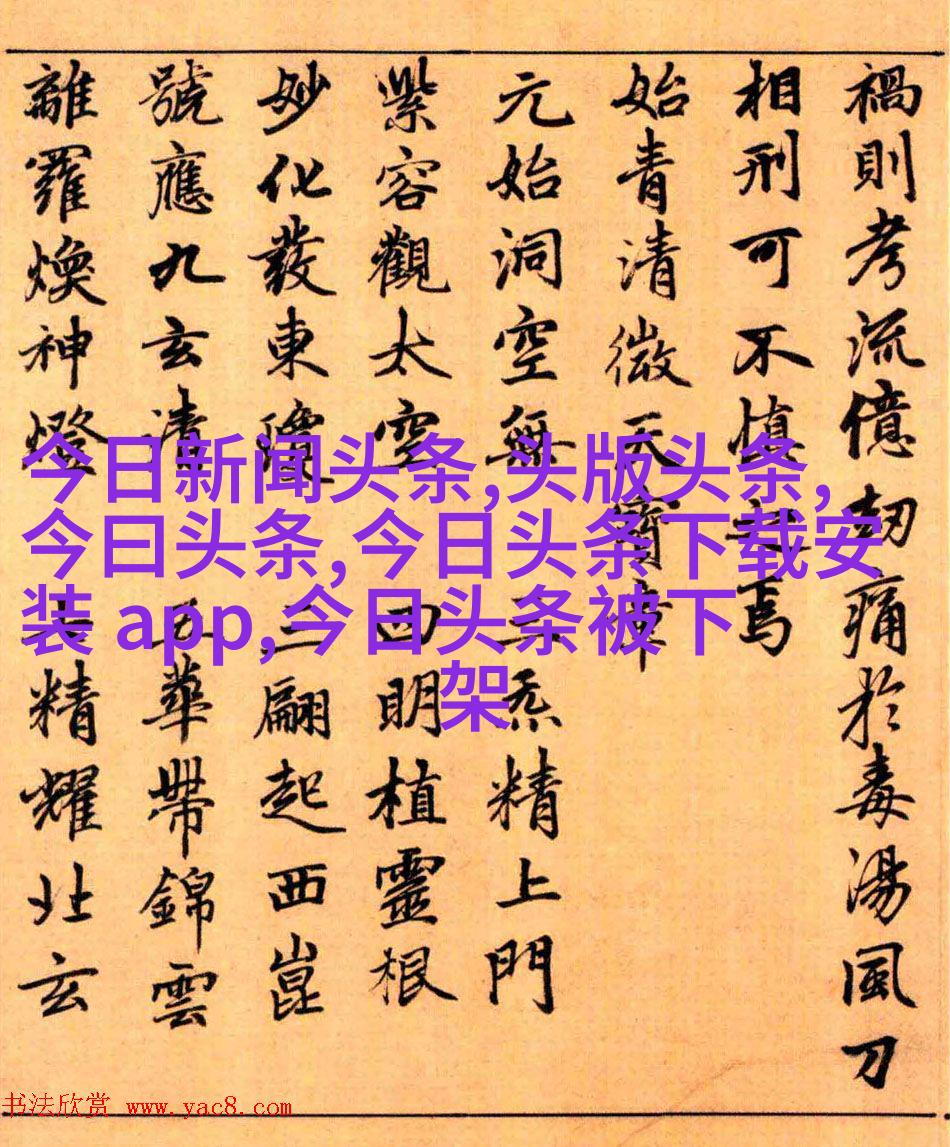 禍則考流億劫痛於毒湯風刀
相刑可不慎歟焉
始青清微天寶章
元始洞空無 三炁精上門
紫容觀太空 四明植靈根
妙化發東 三翩起西崑
號應九玄清 五華帶錦雲
離羅煥神燈 七精耀北玄
今日新闻头条,头版头条,
今曰头条,今日头条下载安
装 app,今日头条被下
架
书法欣赏 www.yac8.com